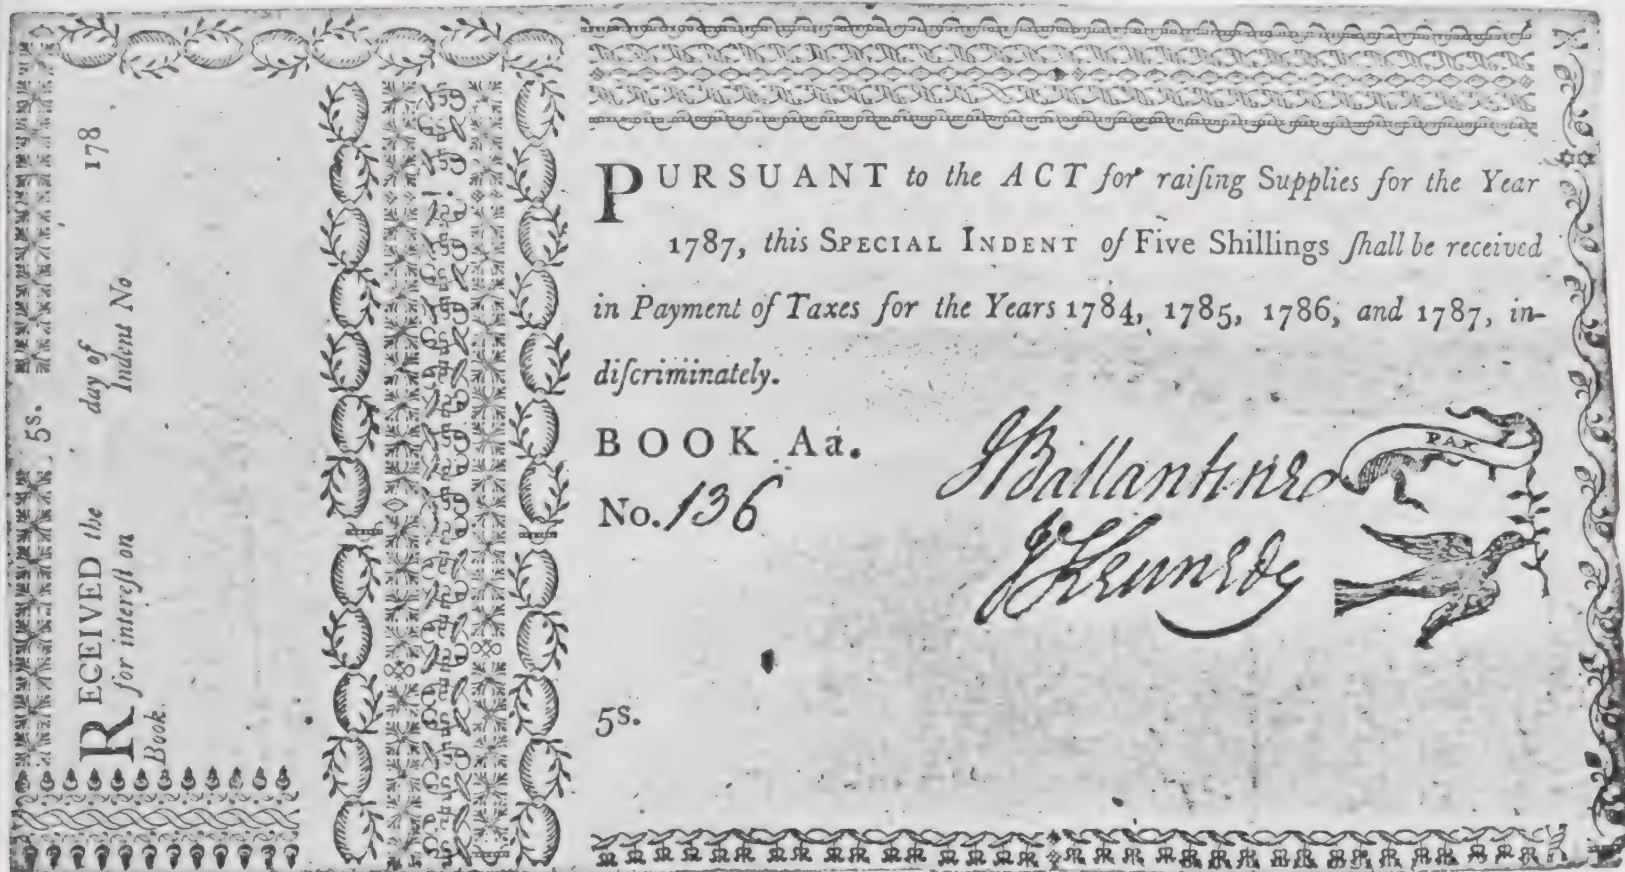 5s.
RECEIVED the day of 178
for intereſt on Indent No
Book.
PURSUANT to the ACT for raiſing Supplies for the Year
1787, this SPECIAL INDENT of Five Shillings ſhall be received
in Payment of Taxes for the Years 1784, 1785, 1786, and 1787, in-
diſcriminately.
BOOK Aa.
No. 136
JBallantine
JKennedy
PAX
5s.